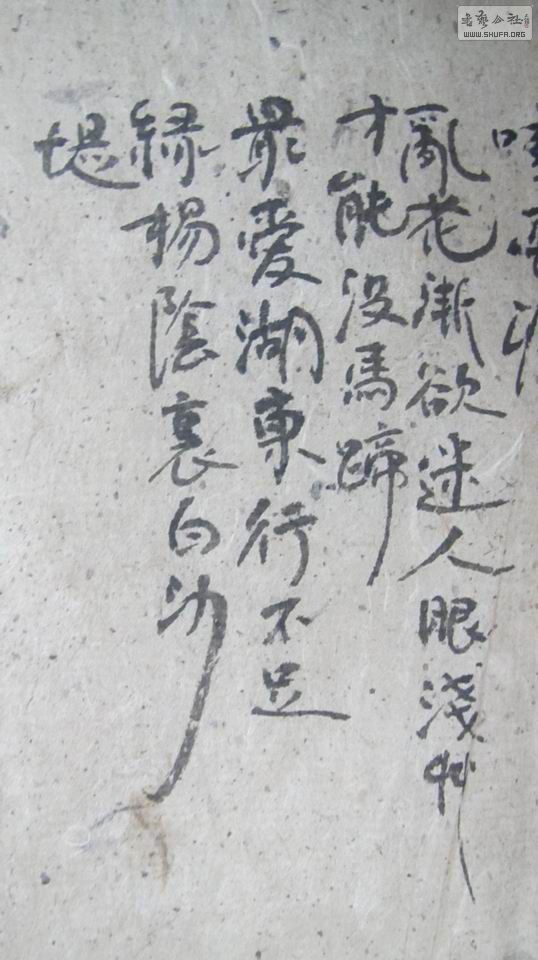 亂花漸欲迷人眼淺艸
才能没馬蹄
最愛湖東行不足
緑楊陰裏白沙
堤
書藝公社
WWW.SHUFA.ORG